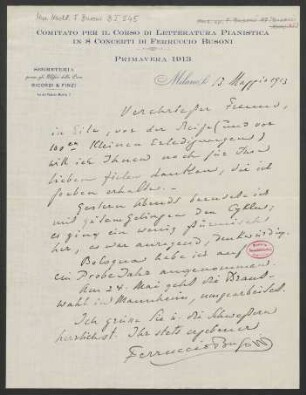 Mus. Nachl. F. Busoni BI, 545
COMITATO PER IL CORSO DI LETTERATURA PIANISTICA
IN 8 CONCERTI DI FERRUCCIO BUSONI
PRIMAVERA 1913
SEGRETERIA
RICORDI & FINZI
Milano, 13 Maggio 1913
Verehrtester Freund,
in Eile, vor der Reise (und vor
100 kleinen Erledigungen)
will ich Ihnen noch für Ihren
lieben danken, die ich
soeben erhalte.
Gestern Abends beendete ich
mit gutem Gelingen den Cyklus,
es ging ein wenig stürmisch
her, es war anregend, denkwürdig.
Bologna habe ich auf
ein Probe Jahr angenommen.
Am 24. Mai geht die Braut-
wahl in Mannheim, umgearbeitet.
Ich grüsse Sie u. die Schwestern
herzlichst. Ihr stets ergebener
Ferruccio Busoni